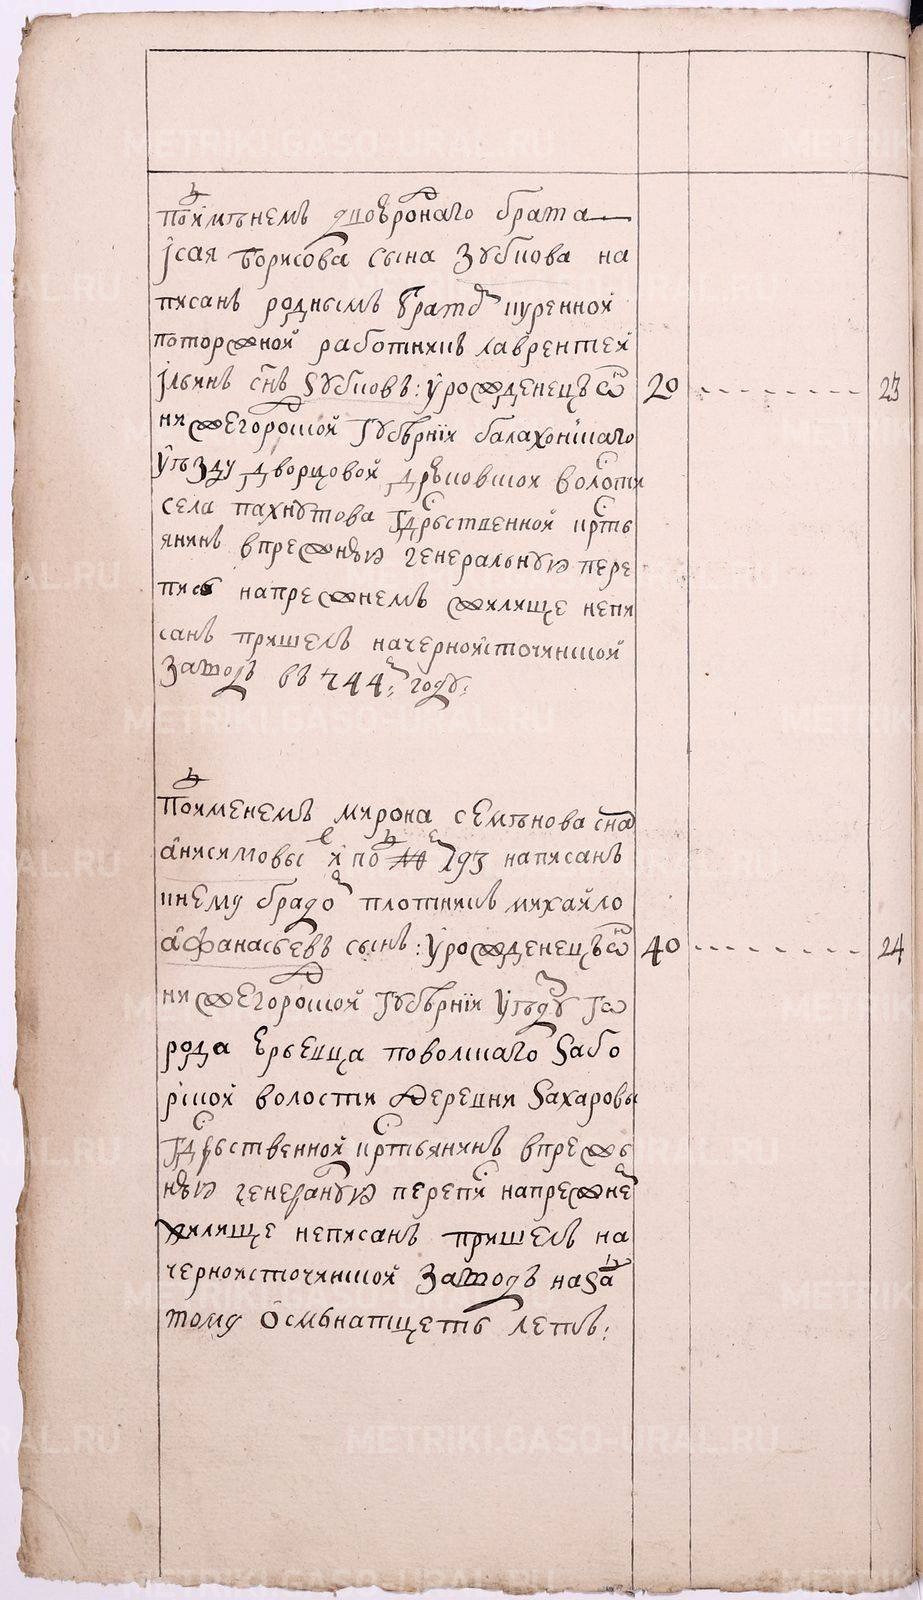 Под имянем двоюроднаго брата
Исая Борисова сына Зубцова на
писанъ роднымъ братомъ куренной
поторжной работникъ Лаврентей
Ильинъ снъ Зубцовъ: Урожденецъ он 20 23
нижегородской губернии балахонскаго
уѣзду дворцовой волости
села Пахнутова гдрственной крсть
янинъ в прежнюю генеральную пере
пись на прежнемъ жилище непи
санъ пришелъ на черноисточинской
заводъ въ 744м году:
Под именемъ Мирона Семѣнова сна
Анисимова и по 793 написанъ
к нему плотникъ Михайло
Афанасьевъ сынъ: Урожденецъ он 40 24
нижегородской губернии уѣзду го
рода Юрьевца повольскаго Забо
рской волости деревни Захаровы
гдрственной крстьянинъ в прежь
нюю генералную перепись на прежнемъ
жилище неписанъ пришелъ на
черноисточинской заводъ назадъ
тому осмьнатцеть летъ:
METRIKI.GASO-URAL.RU